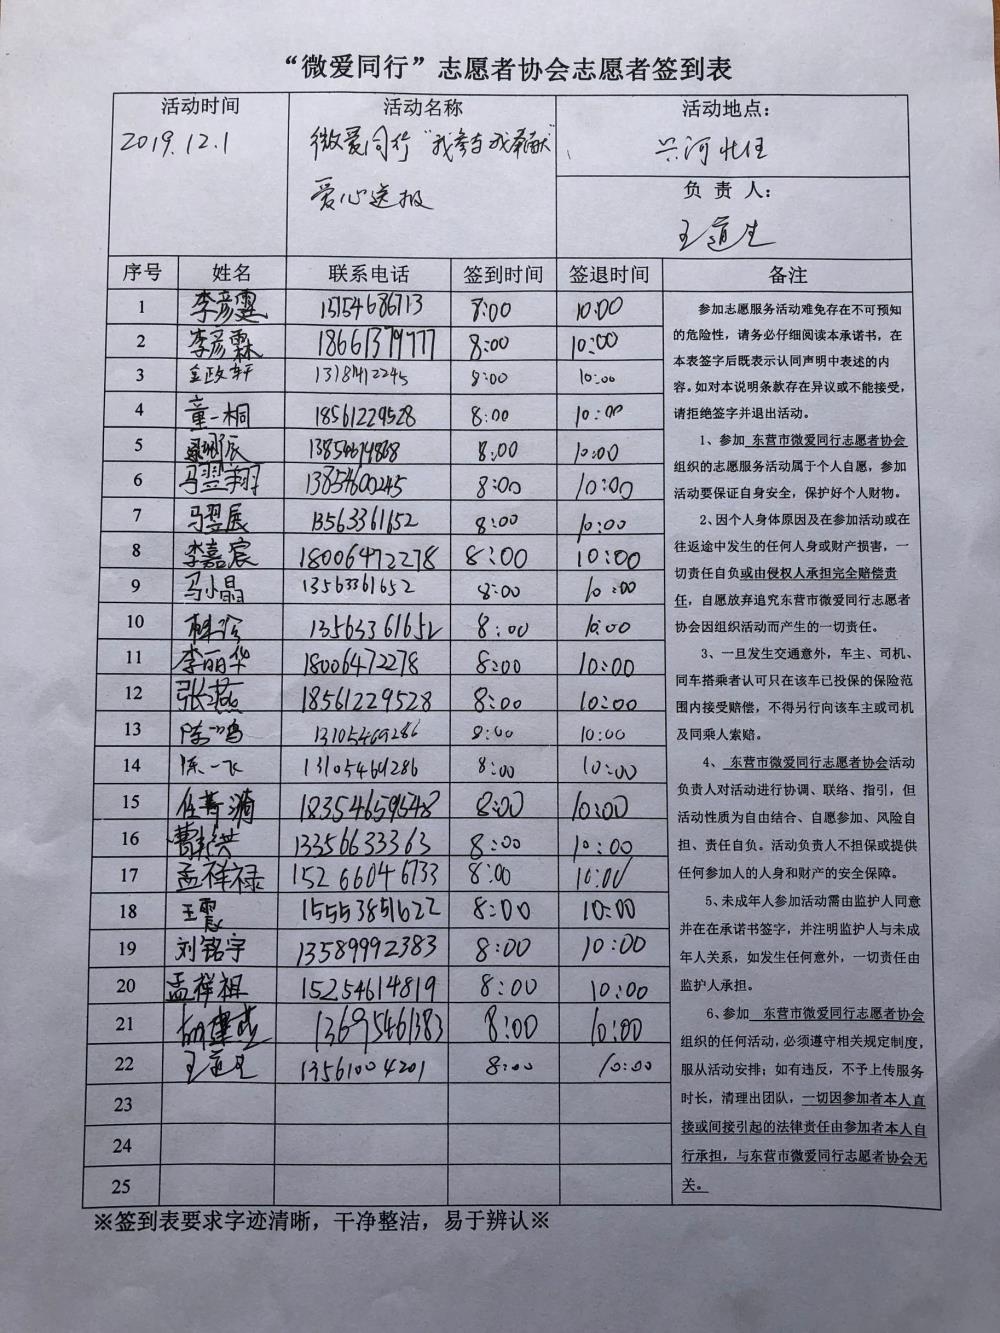 “微爱同行”志愿者协会志愿者签到表
活动时间 活动名称 活动地点：
2019.12.1 微爱同行“我参与我奉献” 兴河
爱心送报 负责人：
王道生
序号 姓名 联系电话 签到时间 签退时间 备注
1 李彦霆 15754686713 8:00 10:00
2 李彦霖 18661379777 8:00 10:00
3 金政轩 8:00 10:00
4 童一桐 18561229528 8:00 10:00
5 8:00 10:00
6 马翌翔 13854600245 8:00 10:00
7 马翌展 13563361652 8:00 10:00
8 李嘉宸 18006472278 8:00 10:00
9 马小晶 13563361652 8:00 10:00
10 13563361652 8:00 10:00
11 李丽华 18006472278 8:00 10:00
12 张燕 18561229528 8:00 10:00
13 陈鸣 13105469286 8:00 10:00
14 陈一飞 13105469286 8:00 10:00
15 18354659548 8:00 10:00
16 13356633363 8:00 10:00
17 孟祥禄 15266046733 8:00 10:00
18 王震 15553851622 8:00 10:00
19 刘铭宇 13589992383 8:00 10:00
20 孟祥祖 15254614819 8:00 10:00
21 13695461383 8:00 10:00
22 王道生 13561004201 8:00 10:00
23
24
25
参加志愿服务活动难免存在不可预知
的危险性，请务必仔细阅读本承诺书，在
本表签字后既表示认同声明中表述的内
容。如对本说明条款存在异议或不能接受，
请拒绝签字并退出活动。
1、参加 东营市微爱同行志愿者协会
组织的志愿服务活动属于个人自愿，参加
活动要保证自身安全，保护好个人财物。
2、因个人身体原因及在参加活动或在
往返途中发生的任何人身或财产损害，一
切责任自负或由侵权人承担完全赔偿责
任，自愿放弃追究东营市微爱同行志愿者
协会因组织活动而产生的一切责任。
3、一旦发生交通意外，车主、司机、
同车搭乘者认可只在该车已投保的保险范
围内接受赔偿，不得另行向该车主或司机
及同乘人索赔。
4、 东营市微爱同行志愿者协会活动
负责人对活动进行协调、联络、指引，但
活动性质为自由结合、自愿参加、风险自
担、责任自负。活动负责人不担保或提供
任何参加人的人身和财产的安全保障。
5、未成年人参加活动需由监护人同意
并在在承诺书签字，并注明监护人与未成
年人关系，如发生任何意外，一切责任由
监护人承担。
6、参加 东营市微爱同行志愿者协会
组织的任何活动，必须遵守相关规定制度，
服从活动安排；如有违反，不予上传服务
时长，清理出团队，一切因参加者本人直
接或间接引起的法律责任由参加者本人自
行承担，与东营市微爱同行志愿者协会无
关。
※签到表要求字迹清晰，干净整洁，易于辨认※